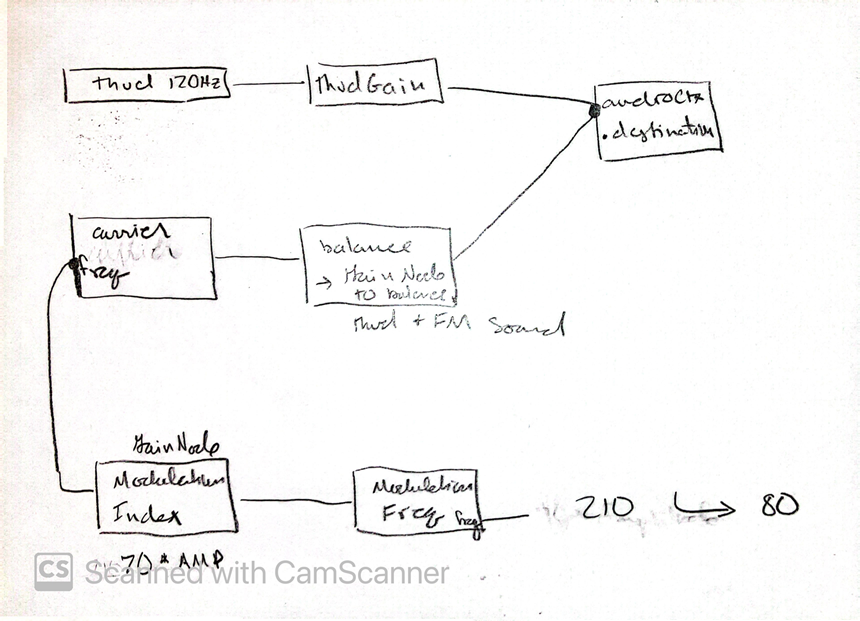 thud 120Hz
thudGain
audioCtx
.destination
carrier
freq
balance
→ GainNode
to balance
thud + FM Sound
GainNode
Modulation
Index
70 * AMP
Modulation
Freq freq
210 → 80
CS Scanned with CamScanner